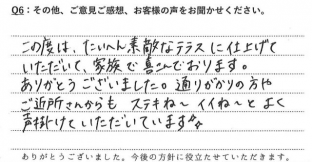 Q6：その他、ご意見ご感想、お客様の声をお聞かせください。
この度は、たいへん素敵なテラスに仕上げて
いただいて、家族で喜んでおります。
ありがとうございました。通りがかりの方や
ご近所さんからも ステキね〜 イイね〜 と よく
声掛けていただいています
ありがとうございました。今後の方針に役立たせていただきます。